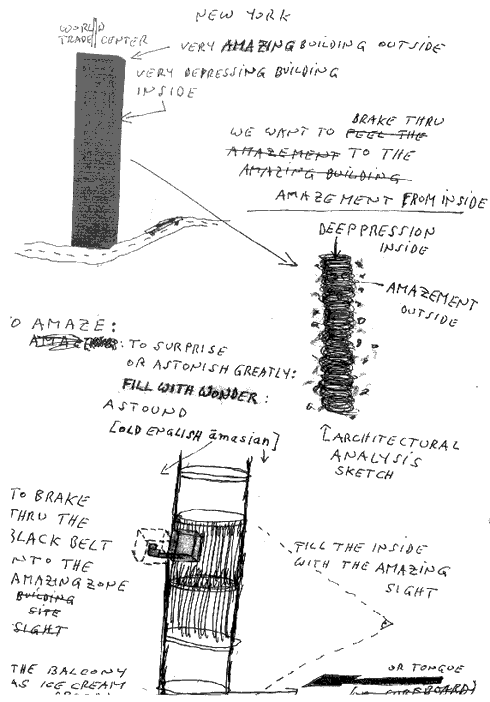 NEW YORK
WORLD
TRADE CENTER
VERY AMAZING BUILDING OUTSIDE
VERY DEPRESSING BUILDING
INSIDE
BRAKE THRU
WE WANT TO FEEL THE
AMAZEMENT TO THE
AMAZING BUILDING
AMAZEMENT FROM INSIDE
DEEPPRESSION
INSIDE
AMAZEMENT
OUTSIDE
O AMAZE:
TO SURPRISE
OR ASTONISH GREATLY:
FILL WITH WONDER:
ASTOUND
[OLD ENGLISH āmasian]
ARCHITECTURAL
ANALYSIS
SKETCH
TO BRAKE
THRU THE
BLACK BELT
NTO THE
AMAZING ZONE
BUILDING
SITE
SIGHT
FILL THE INSIDE
WITH THE AMAZING
SIGHT
THE BALCONY
AS ICE CREAM
OR TONGUE